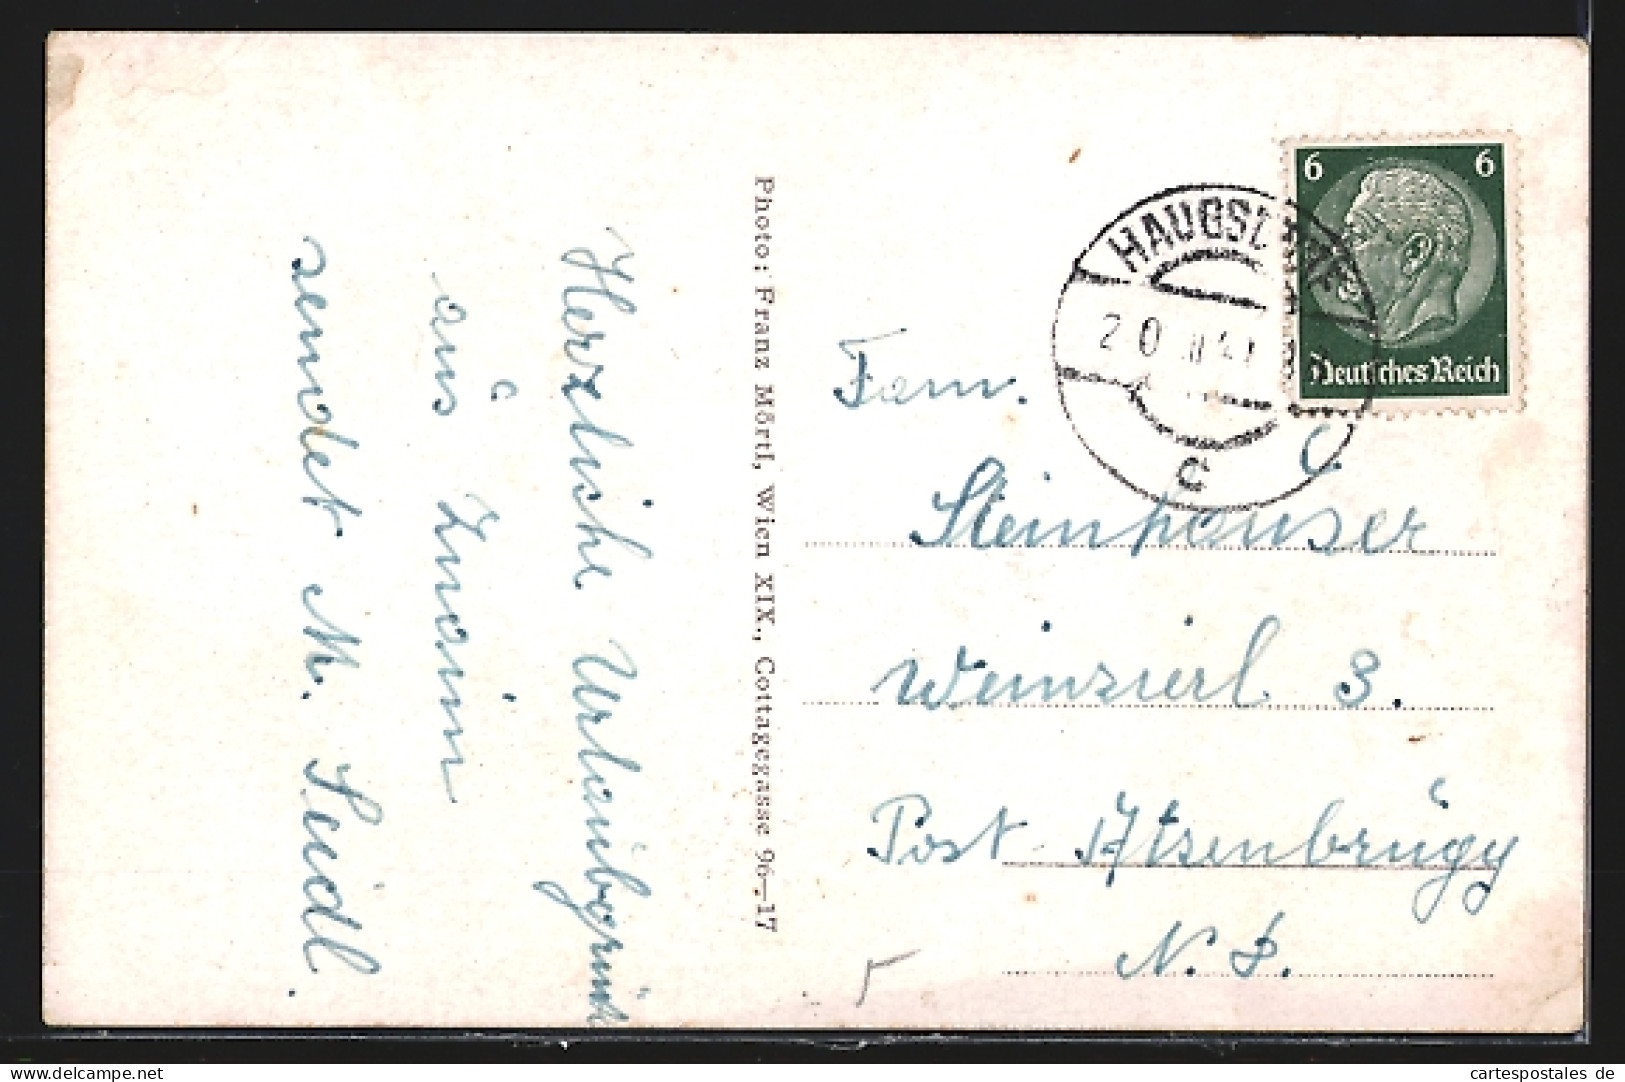 Herzliche Urlaubsgrüße
aus Znaim
sendet M. Seidl.
Photo: Franz Mörtl, Wien XIX., Cottagegasse 96—17
HAUGSDORF
20
c
6 6
Deutsches Reich
Fam.
Steinhauser
Weinzierl 3.
Post Atzenbrugg
N. D.
delcampe.net
cartespostales de